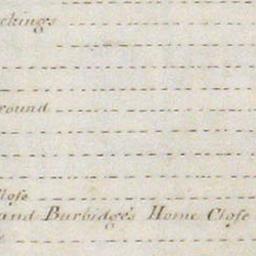 ckings
round
Close
and Burbidge's Home Close